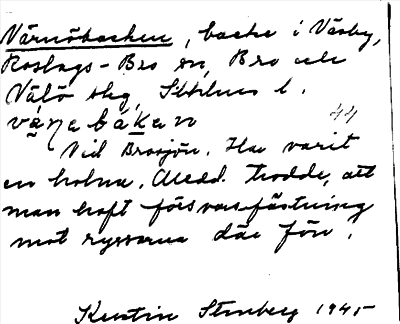 Värnöbacken, backe i Väsby,
Roslags-Bro sn, Bro och
Vätö skg, Sthlms l.
44
Vid Brosjön. Har varit
en holme. Medd. trodde, att
man haft försvarsfästning
mot ryssarna där förr.
Kerstin Stenberg 1945